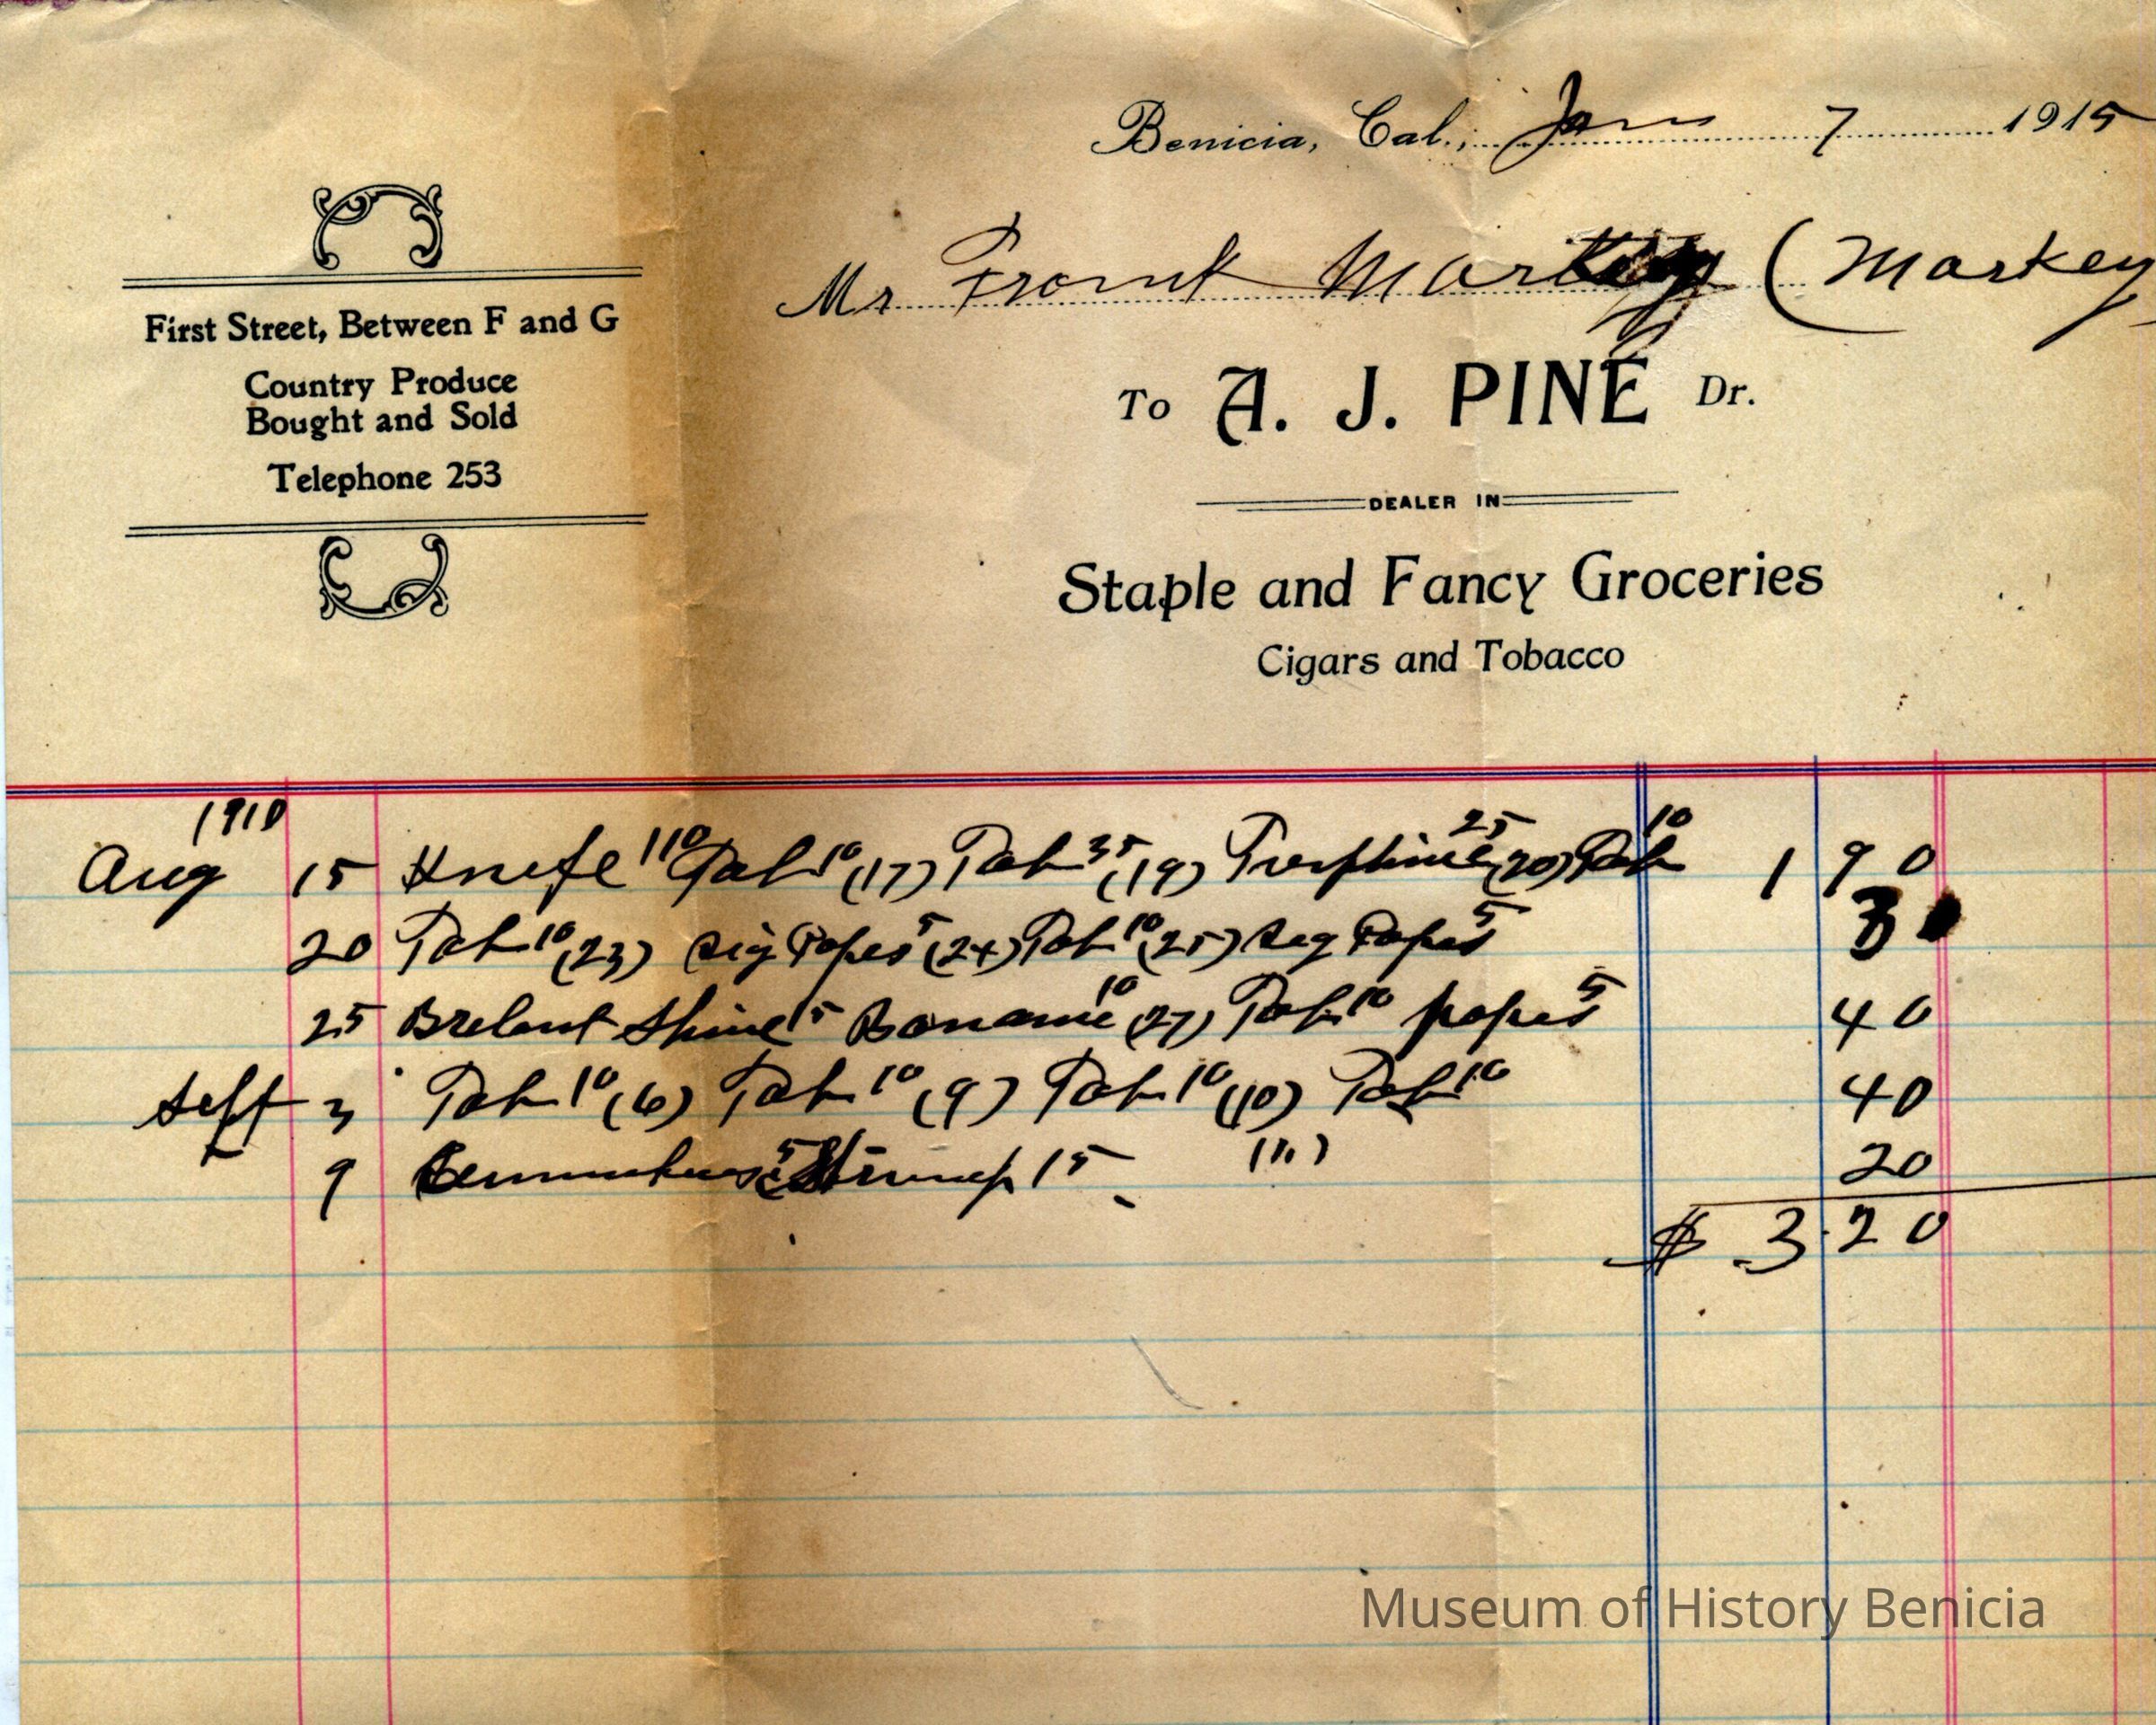 Benicia, Cal., Jan 7 1915
Mr Frank Markey (Markey
First Street, Between F and G
Country Produce
Bought and Sold
Telephone 253
To A. J. PINE Dr.
DEALER IN
Staple and Fancy Groceries
Cigars and Tobacco
1910
Aug 15 Knife 110 Tob 10 (17) Tob 35 (19) 25 (20) Tob 10 1 90
20 Tob 10 (23) Sig Papes 5 (24) Tob 10 (25) Seg Papes 5 30
25 Shine 15 Bonamie 10 (27) Tob 10 papes 5 40
Sept 3 Tob 10 (6) Tob 10 (9) Tob 10 (10) Tob 10 40
9 5 15 (11) 20
$ 3.20
Museum of History Benicia